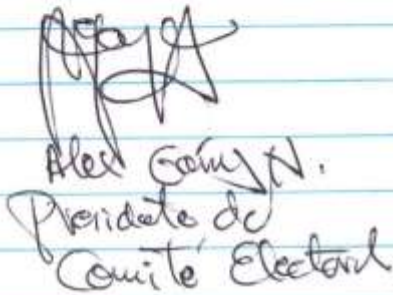 Alex Gómz N.
Presidente de
Comité Electoral